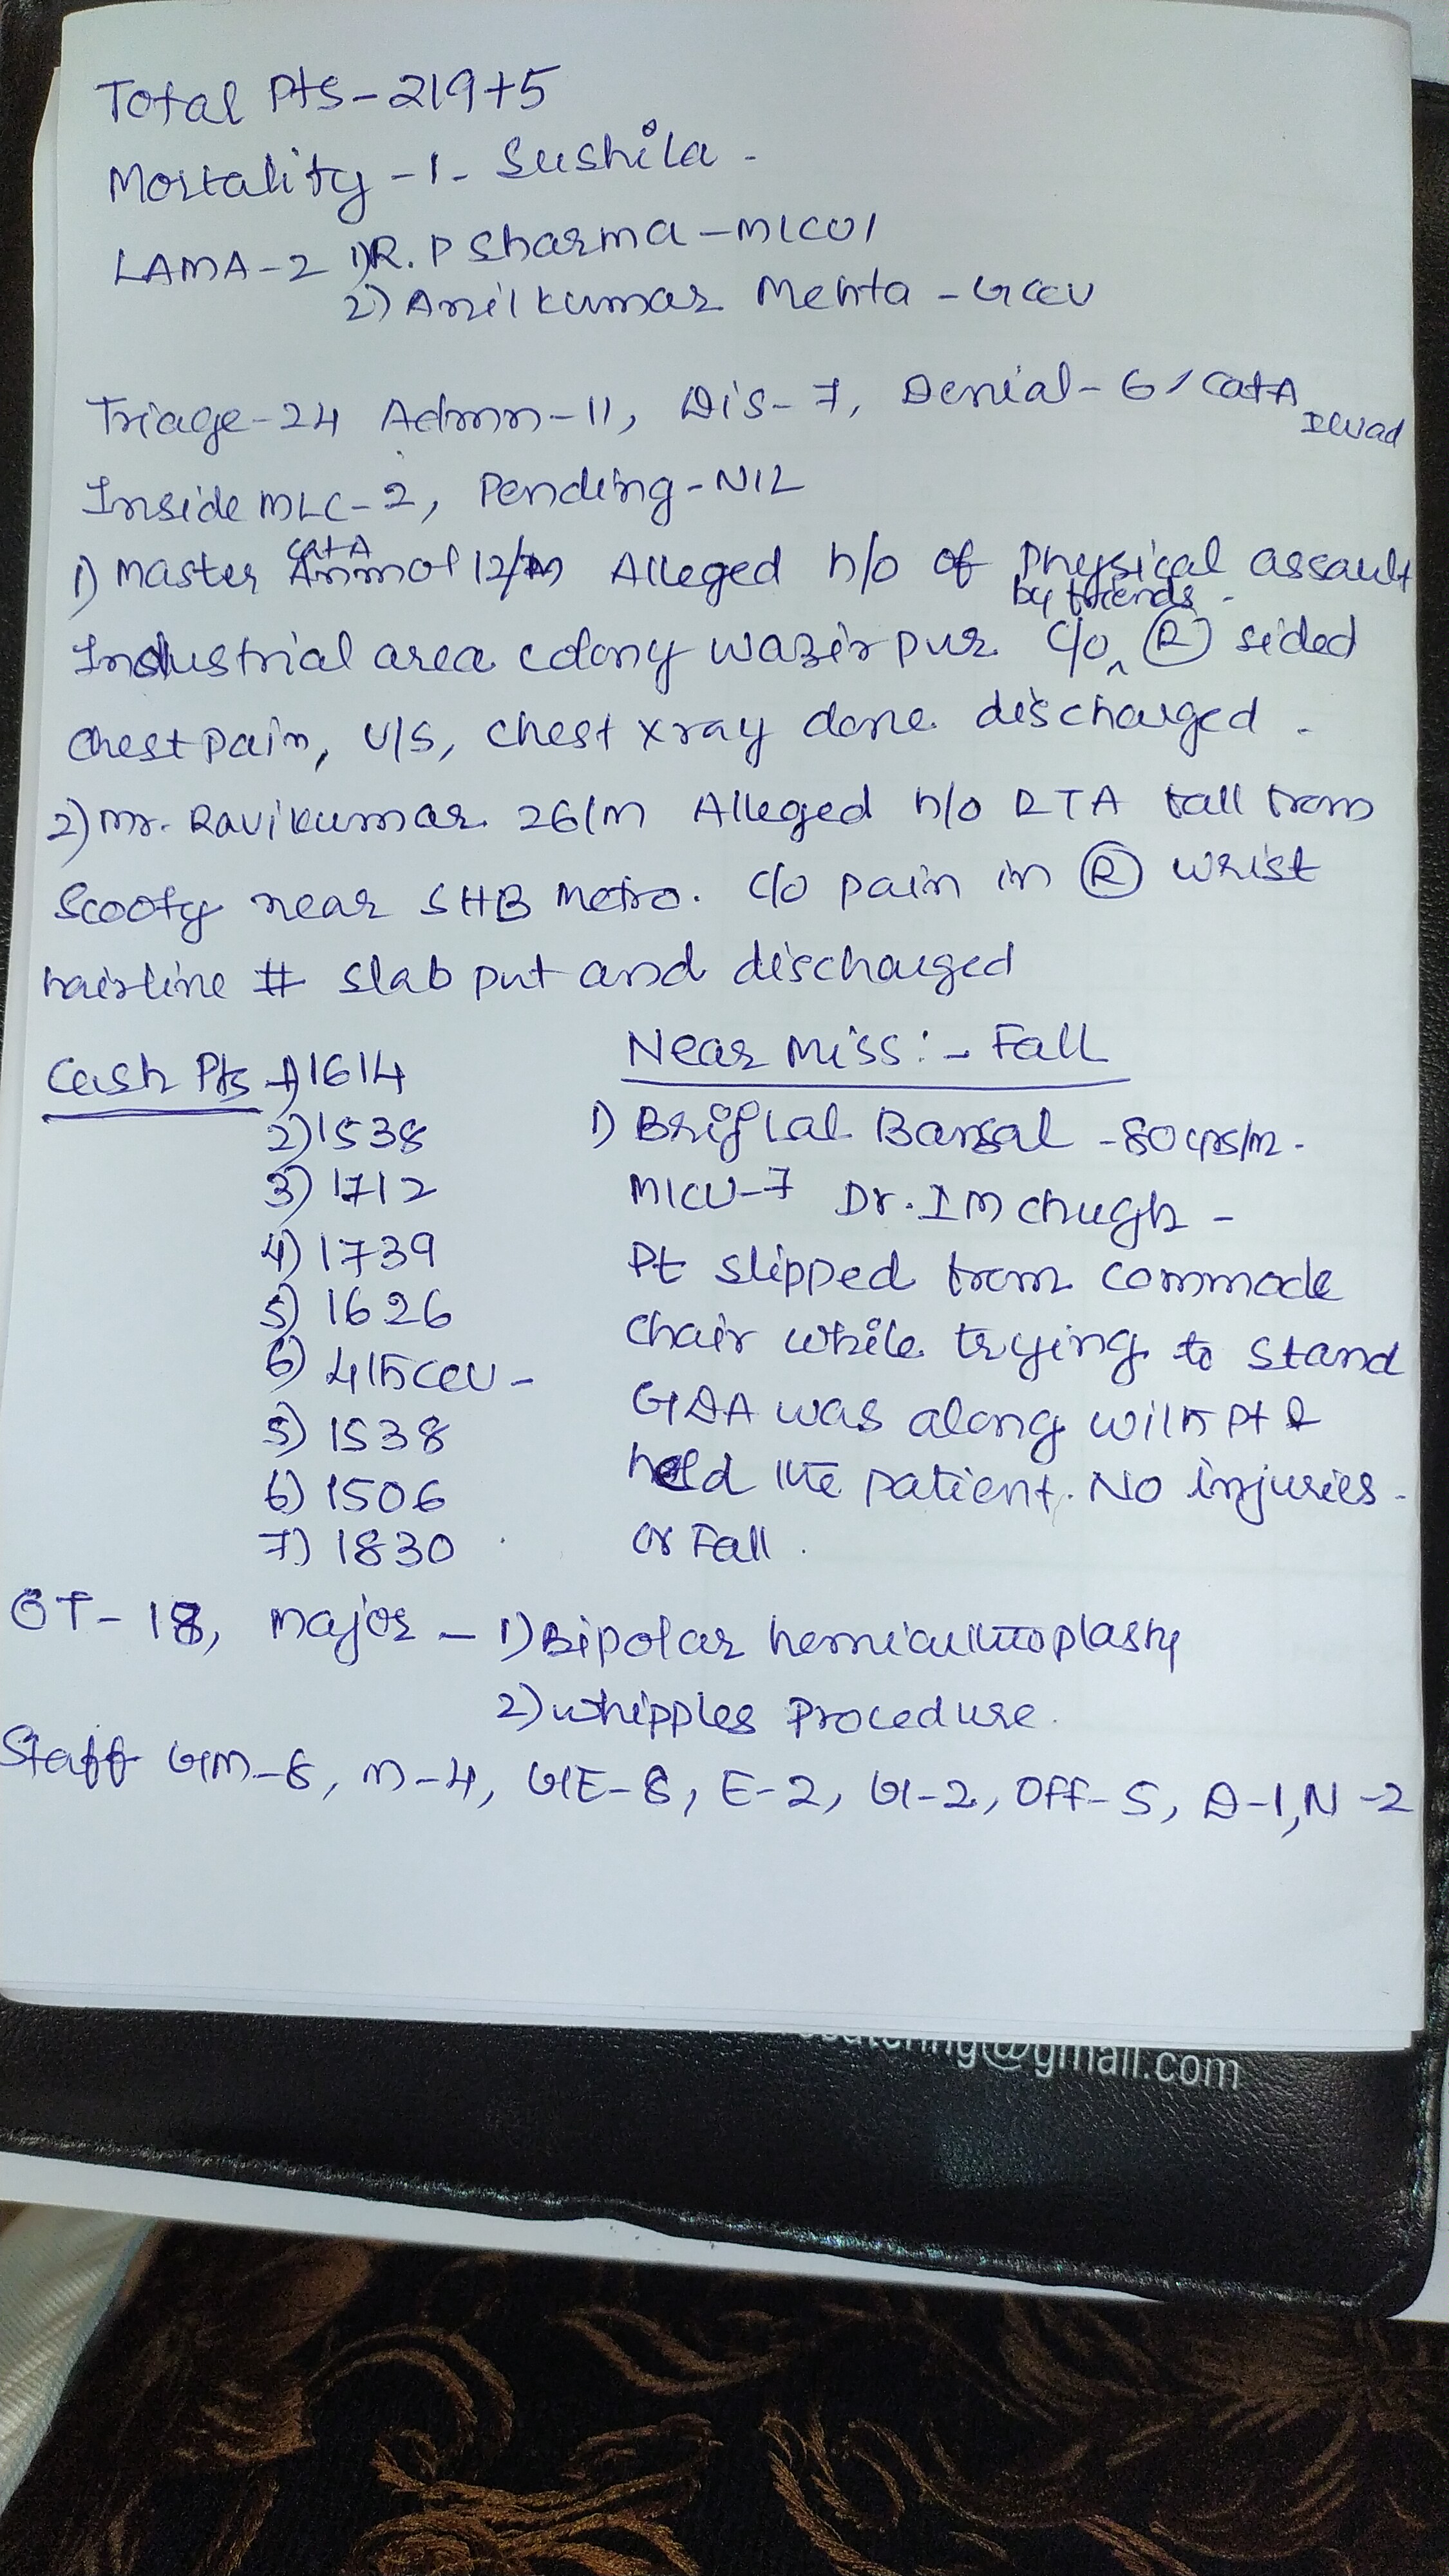 Total Pts-219+5
Mortality-1- Sushila -
LAMA-2 1) R.P Sharma-MICU1
2) Anil kumar Mehta -GCCU
Triage-24 Admn-11, Dis-7, Denial-6, Cat A
Inside MLC-2, Pending-NIL
Cat A
1) Master Anmol 12/M Alleged h/o of Physical assault
by friends -
Industrial area colony wazirpur c/o (R) sided
Chest pain, U/S, chest xray done discharged.
2) Mr. Ravikumar 26/M Alleged h/o RTA fall from
Scooty near SHB Metro. C/o pain in (R) wrist
hairline # slab put and discharged
Cash Pts 1) 1614
2) 1538
3) 1712
4) 1739
5) 1626
6) 4th CCU -
5) 1538
6) 1506
7) 1830
Near Miss:- Fall
1) Brijlal Bansal -80yrs/m.
MICU-7 Dr. I M chugh -
Pt slipped from commode
chair while trying to stand
GDA was along with pt &
held the patient. No injuries.
or Fall.
OT- 18, major - 1) Bipolar hemiarthroplasty
2) whipples Procedure.
Staff GM-8, M-4, GE-8, E-2, G-2, Off-5, D-1, N-2
catering@gmail.com